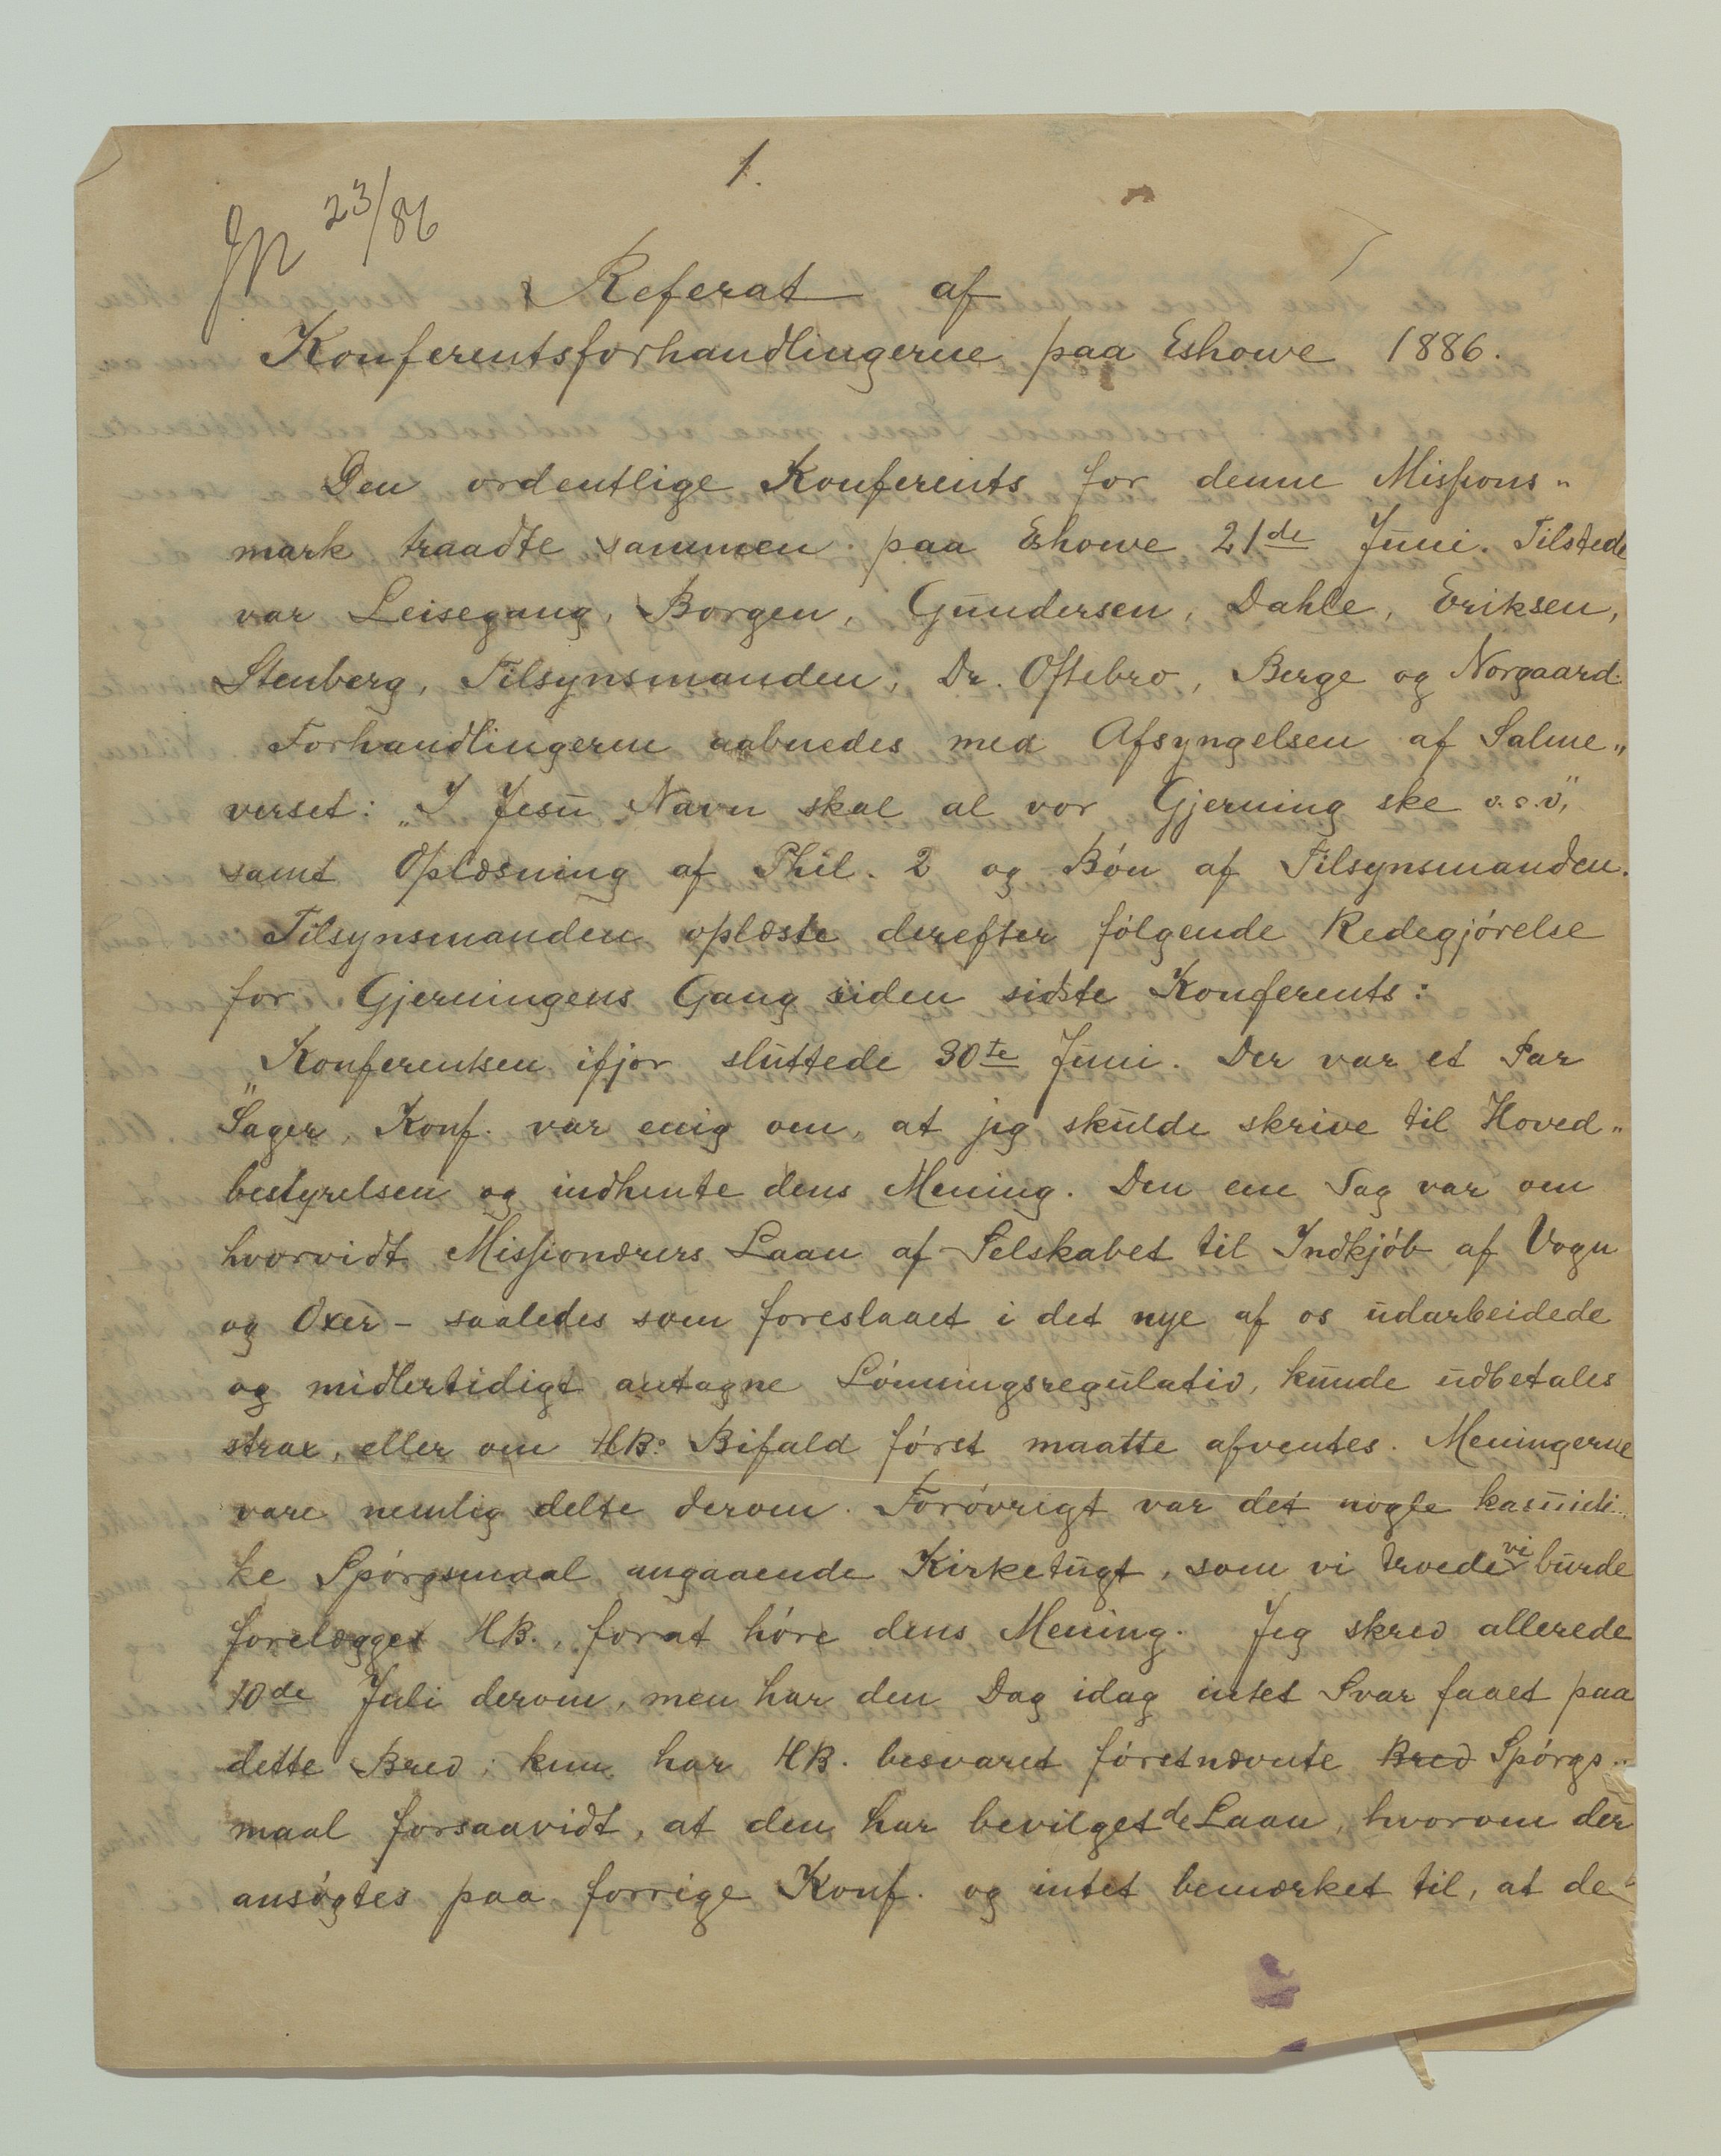 1.
JN 23/86
Referat af
Konferentsforhandlingerne paa Eshowe 1886.
Den ordentlige Konferents for denne Missions„
mark traadte sammen paa Eshowe 21de Juni. Tilstede
var Leisegang, Borgen, Gundersen, Dahle, Eriksen,
Stenberg, Tilsynsmanden, Dr. Oftebro, Berge og Norgaard.
Forhandlingerne aabnedes med Afsyngelsen af Salme„
verset: „I Jesu Navn skal al vor Gjerning ske o.s.v.",
samt Oplæsning af Phil. 2 og Bón af Tilsynsmanden.
Tilsynsmanden oplæste derefter fólgende Redegjórelse
for Gjerningens Gang siden sidste Konferents:
„Konferentsen ifjor sluttede 30te Juni. Der var et Par
Sager, Konf. var enig om, at jeg skulde skrive til Hoved„
bestyrelsen og indhente dens Mening. Den ene Sag var om
hvorvidt Missionærers Laan af Selskabet til Indkjób af Vogn
og Oxer – saaledes som foreslaaet i det nye af os udarbeidede
og midlertidigt antagne Lónningsregulativ, kunde udbetales
strax, eller om HBs Bifald fórst maatte afventes. Meningerne
vare nemlig delte derom. Foróvrigt var det nogle kasuisti„
ke Spórgsmaal angaaende Kirketugt, som vi troede vi burde
forelægges HB., forat hóre dens Mening. Jeg skrev allerede
10de Juli derom, men har den Dag idag intet Svar faaet paa
dette Brev; kun har HB. besvaret fórstnævnte Brev Spórgs„
maal forsaavidt, at den har bevilget de Laan, hvorom der
ansógtes paa forrige Konf. og intet bemærket til, at de